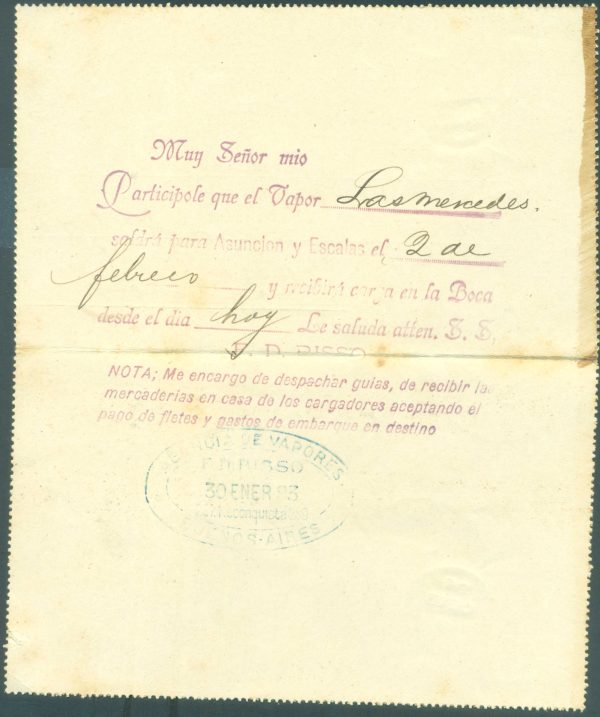 Muy Señor mio
Participole que el Vapor Las mercedes.
saldrá para Asuncion y Escalas el 2 de
febrero y recibirá carga en la Boca
desde el dia hoy Le saluda atten. S. S,
NOTA; Me encargo de despachar guias, de recibir la
mercaderias en casa de los cargadores aceptando el
pago de fletes y gastos de embarque en destino
DE VAPORES
RISSO
30 ENER 93
Reconquista
AIRES